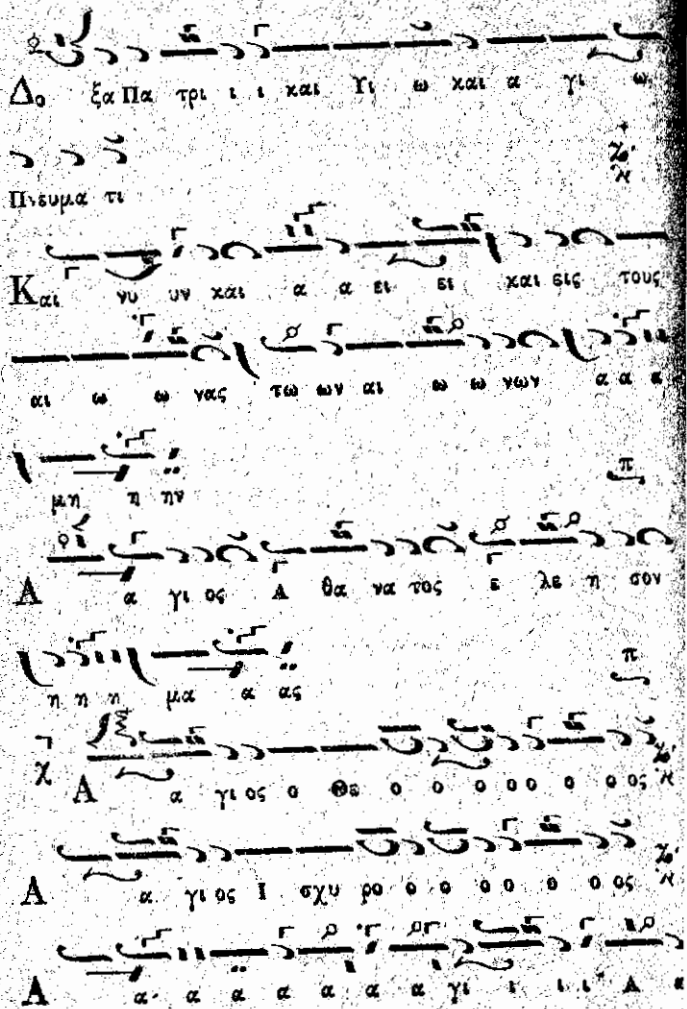 Δο ξα Πα τρι ι ι και Υι ω και α γι ω
Πνευμα τι
Και νυ υν και α α ει ει και εις τους
αι ω ω νας τω ων αι ω ω νων α α α
μη η ην
π
Α α γι ος Α θα να τος ε λε η σον
η η η μα α ας
π
χ Α α γι ος ο Θε ο ο ο ο ο ο ο ος
Α α γι ος Ι σχυ ρο ο ο ο ο ο ο ος
Α α α α α α α α γι ι ι ι Α α